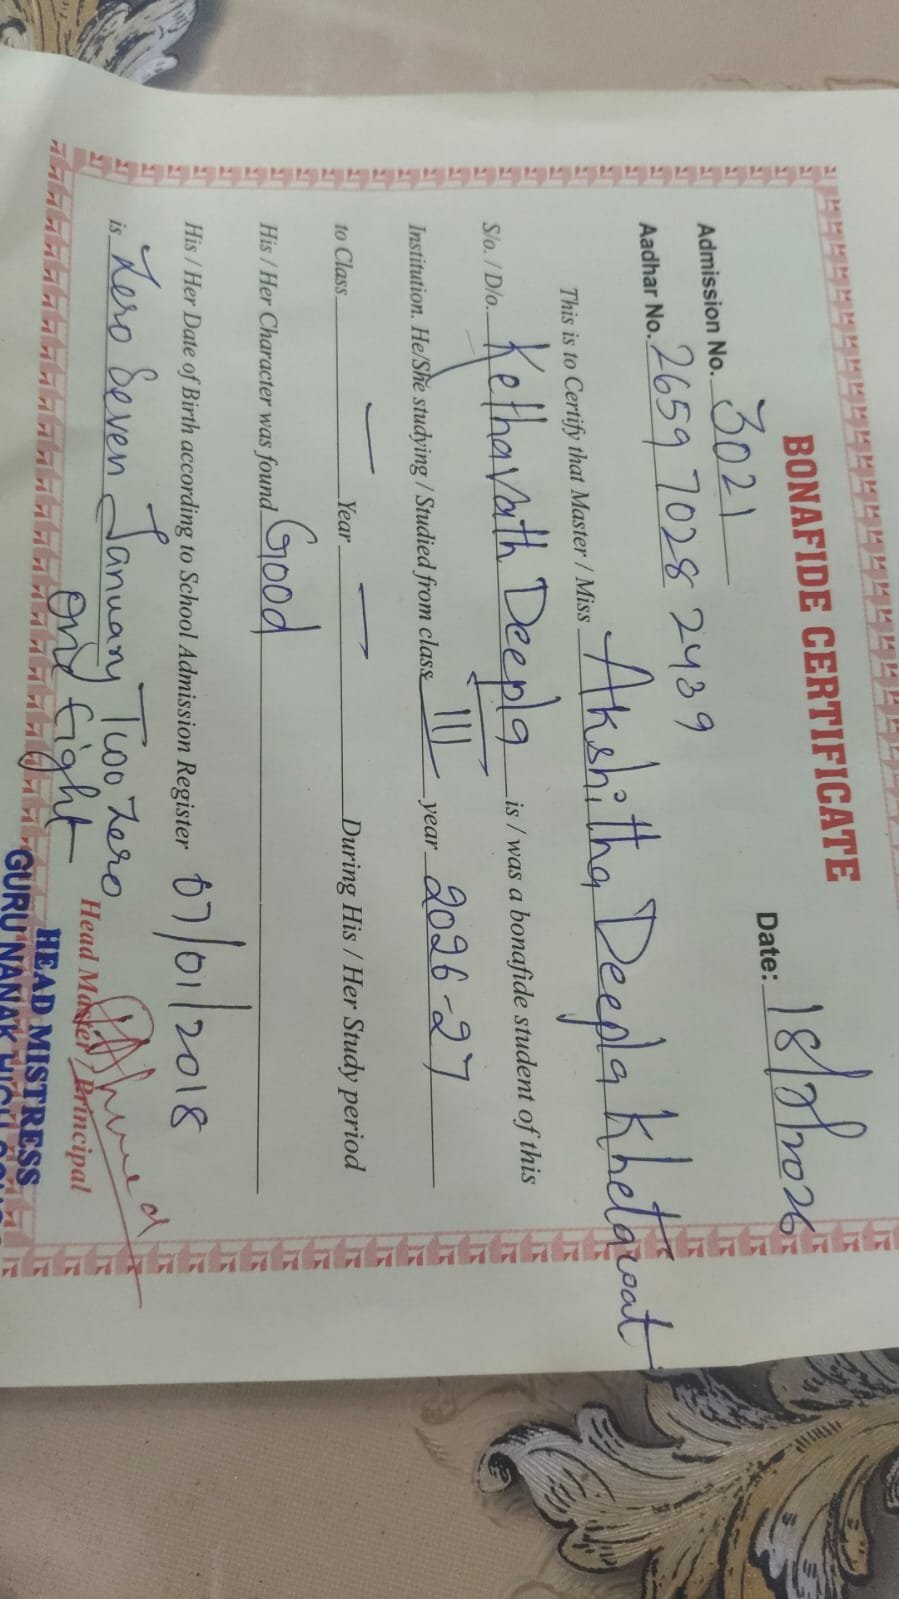 BONAFIDE CERTIFICATE
Admission No. 3021
Date: 18/ /2026
Aadhar No. 2659 7028 2439
This is to Certify that Master / Miss Akshitha Deepla Khetavat
S/o. / D/o. Kethavath Deepla is / was a bonafide student of this
Institution. He/She studying / Studied from class III year 2026-27
to Class — Year — During His / Her Study period
His / Her Character was found Good
His / Her Date of Birth according to School Admission Register 07/01/2018
is Zero Seven January Two Zero
One Eight
Head Master / Principal
HEAD MISTRESS
GURU NANAK HIGH